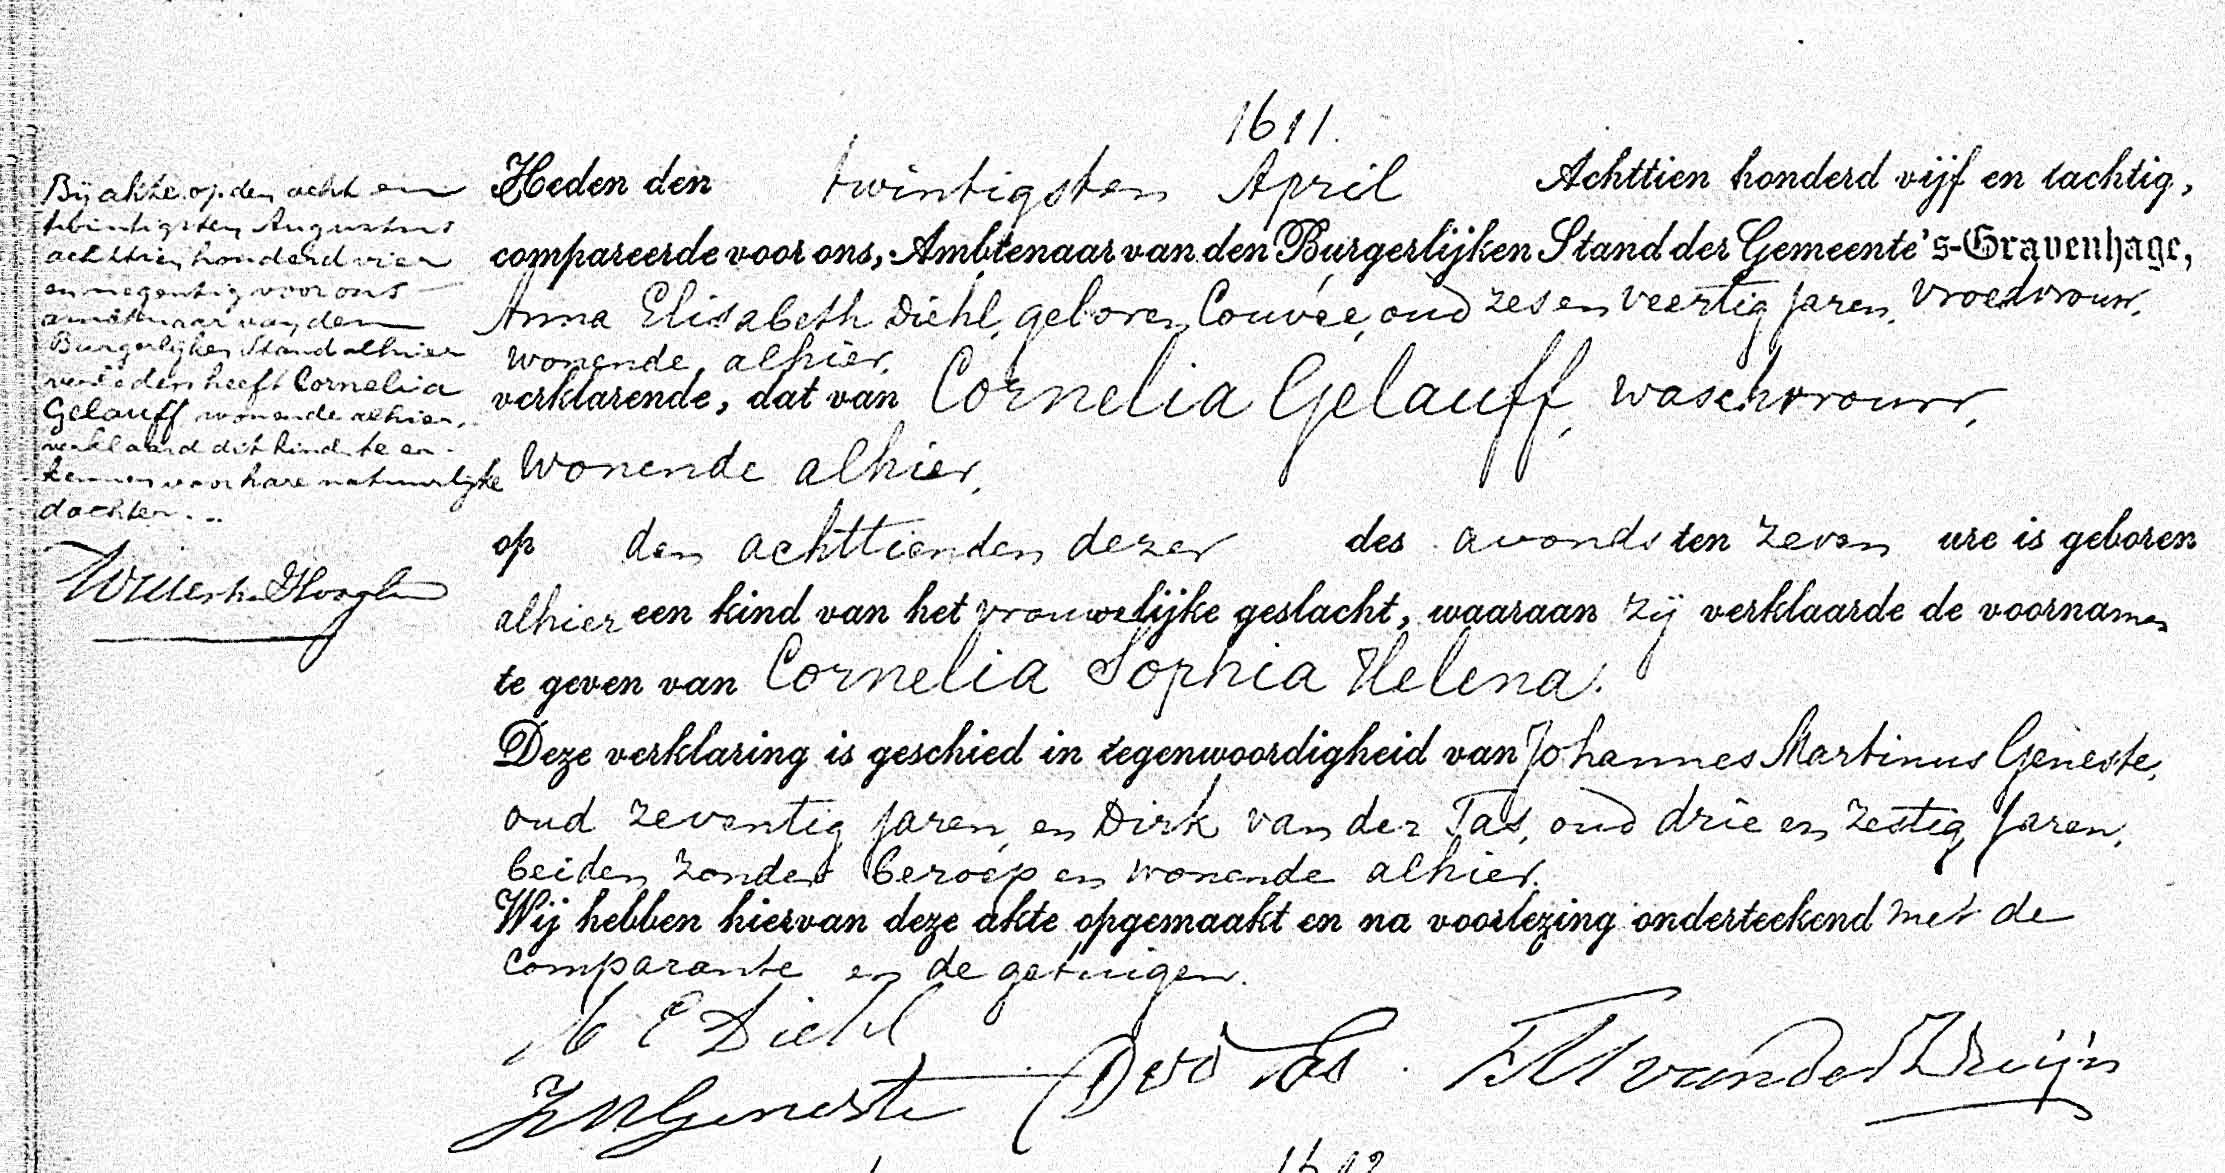 1611.
Heden den twintigsten April Achttien honderd vijf en tachtig,
compareerde voor ons, Ambtenaar van den Burgerlijken Stand der Gemeente 's-Gravenhage,
Anna Elisabeth Diehl, geboren Couvée, oud zes en veertig jaren, vroedvrouw,
wonende alhier,
verklarende, dat van Cornelia Gelauff, waschvrouw,
wonende alhier,
op den achttienden dezer des avonds ten zeven ure is geboren
alhier een kind van het vrouwelijke geslacht, waaraan zij verklaarde de voornamen
te geven van Cornelia Sophia Helena.
Deze verklaring is geschied in tegenwoordigheid van Johannes Martinus Geneste,
oud zeventig jaren, en Dirk van der Tas, oud drie en zestig jaren,
beiden zonder beroep en wonende alhier.
Wij hebben hiervan deze akte opgemaakt en na voorlezing onderteekend met de
comparante en de getuigen.
A E Diehl
JMGeneste DvdTas
Bij akte op den acht en
twintigsten Augustus
achttien honderd vier
en negentig voor ons
ambtenaar van den
Burgerlijken Stand alhier
verleden heeft Cornelia
Gelauff wonende alhier,
verklaard dit kind te er-
kennen voor hare natuurlijke
dochter.